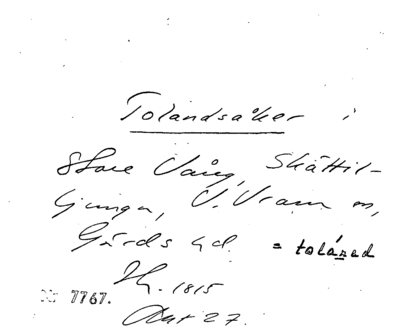 Tolandsåker i
Store Vång, Skättil-
ljunga, V. Vram sn,
Gärds hd. = toláned
Jh. 1815
Akt 27.
Nr 7767.